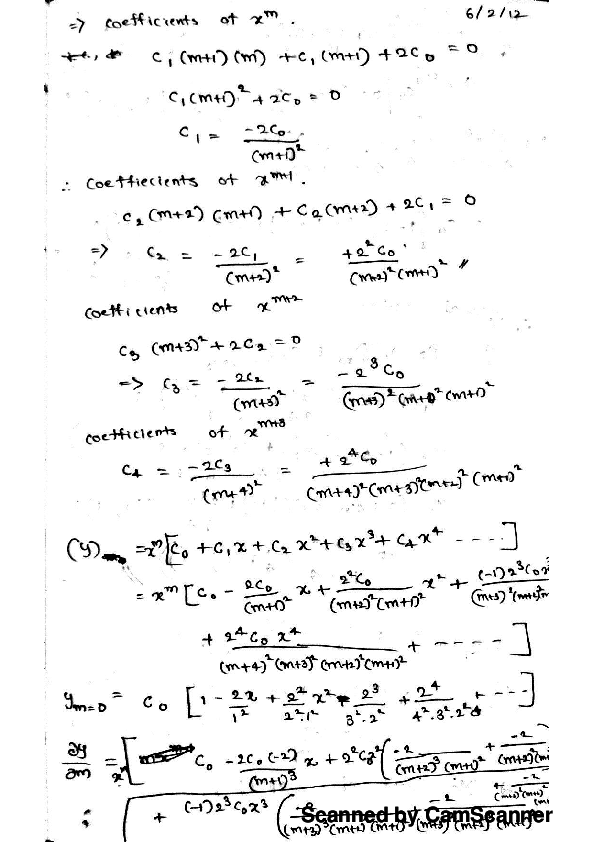 => coefficients of x^m. 6/2/12
c₁(m+1)(m) + c₁(m+1) + 2c₀ = 0
c₁(m+1)² + 2c₀ = 0
c₁ = -2c₀/(m+1)²
∴ coeffiecients of x^(m+1).
c₂(m+2)(m+1) + c₂(m+2) + 2c₁ = 0
=> c₂ = -2c₁/(m+2)² = +2²c₀/((m+2)²(m+1)²) //
coefficients of x^(m+2)
c₃(m+3)² + 2c₂ = 0
=> c₃ = -2c₂/(m+3)² = -2³c₀/((m+3)²(m+2)²(m+1)²)
coefficients of x^(m+3)
c₄ = -2c₃/(m+4)² = +2⁴c₀/((m+4)²(m+3)²(m+2)²(m+1)²)
(y) = x^m[c₀ + c₁x + c₂x² + c₃x³ + c₄x⁴ ----]
= x^m[c₀ - 2c₀/(m+1)² x + 2²c₀/((m+2)²(m+1)²) x² + (-1)2³c₀x³/((m+3)²(m+2)²
+ 2⁴c₀x⁴/((m+4)²(m+3)²(m+2)²(m+1)²) + -----]
y_(m=0) = c₀[1 - 2x/1² + 2²/(2²·1²) x² - 2³/(3²·2²) + 2⁴/(4²·3²·2²) + ---]
∂y/∂m = x^m[c₀ -2c₀(-2)/(m+1)³ x + 2²c₀(-2/((m+2)³(m+1)²) + -2/((m+2)²
+ (-1)2³c₀x³
Scanned by CamScanner